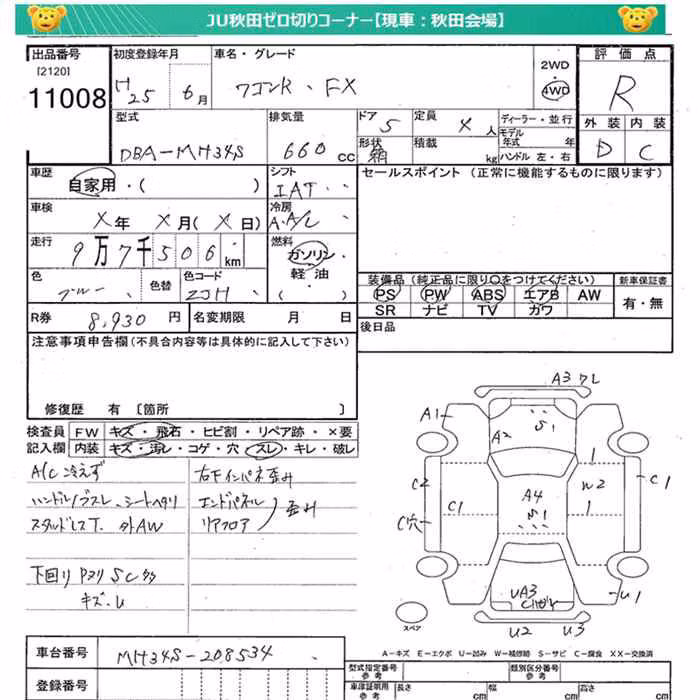 JU秋田ゼロ切りコーナー【現車：秋田会場】
出品番号 初度登録年月 車名・グレード 2WD 評価点
[2120]
11008 H25 6月 ワゴンR、FX 4WD R
型式 排気量 ドア 5 定員 4人 ディーラー・並行 外装 内装
モデル年式 年
DBA-MH34S 660cc 形状 箱 積載 kg ハンドル 左・右 D C
車歴 シフト セールスポイント（正常に機能するものに限ります）
自家用・( ) IAT
車検 冷房
X年 X月(X日) A・A/C
走行 燃料
9万7千506km ガソリン・軽油・( )
色 色替 色コード 装備品（純正品に限り○をつけてください） 新車保証書
ブルー ZJH PS PW ABS エアB AW 有・無
SR ナビ TV カワ
R券 8,930円 名変期限 月 日 後日品
注意事項申告欄（不具合内容等は具体的に記入して下さい）
修復歴 有 [箇所 ]
検査員 FW キズ・飛石・ヒビ割・リペア跡・×要
記入欄 内装 キズ・汚レ・コゲ・穴・スレ・キレ・破レ
A/C冷えず 右Fインパネ歪み
ハンドルノブスレ、シートヘタリ エンドパネル
スタッドレスT. 外AW リアフロア 歪み
下回りPヌリ SC多
キズ・U
A3 ワレ
A1
A2 S1
C2 C1 A4 W2 C1
C穴 S1
UA3 U1
スペア
U2 U3
A－キズ E－エクボ U－凹み W－補修跡 S－サビ C－腐食 XX－交換済
車台番号 MH34S-208534
登録番号
型式指定番号 参考 類別区分番号 参考
車庫証明用 参考 長さ cm 幅 cm 高さ cm